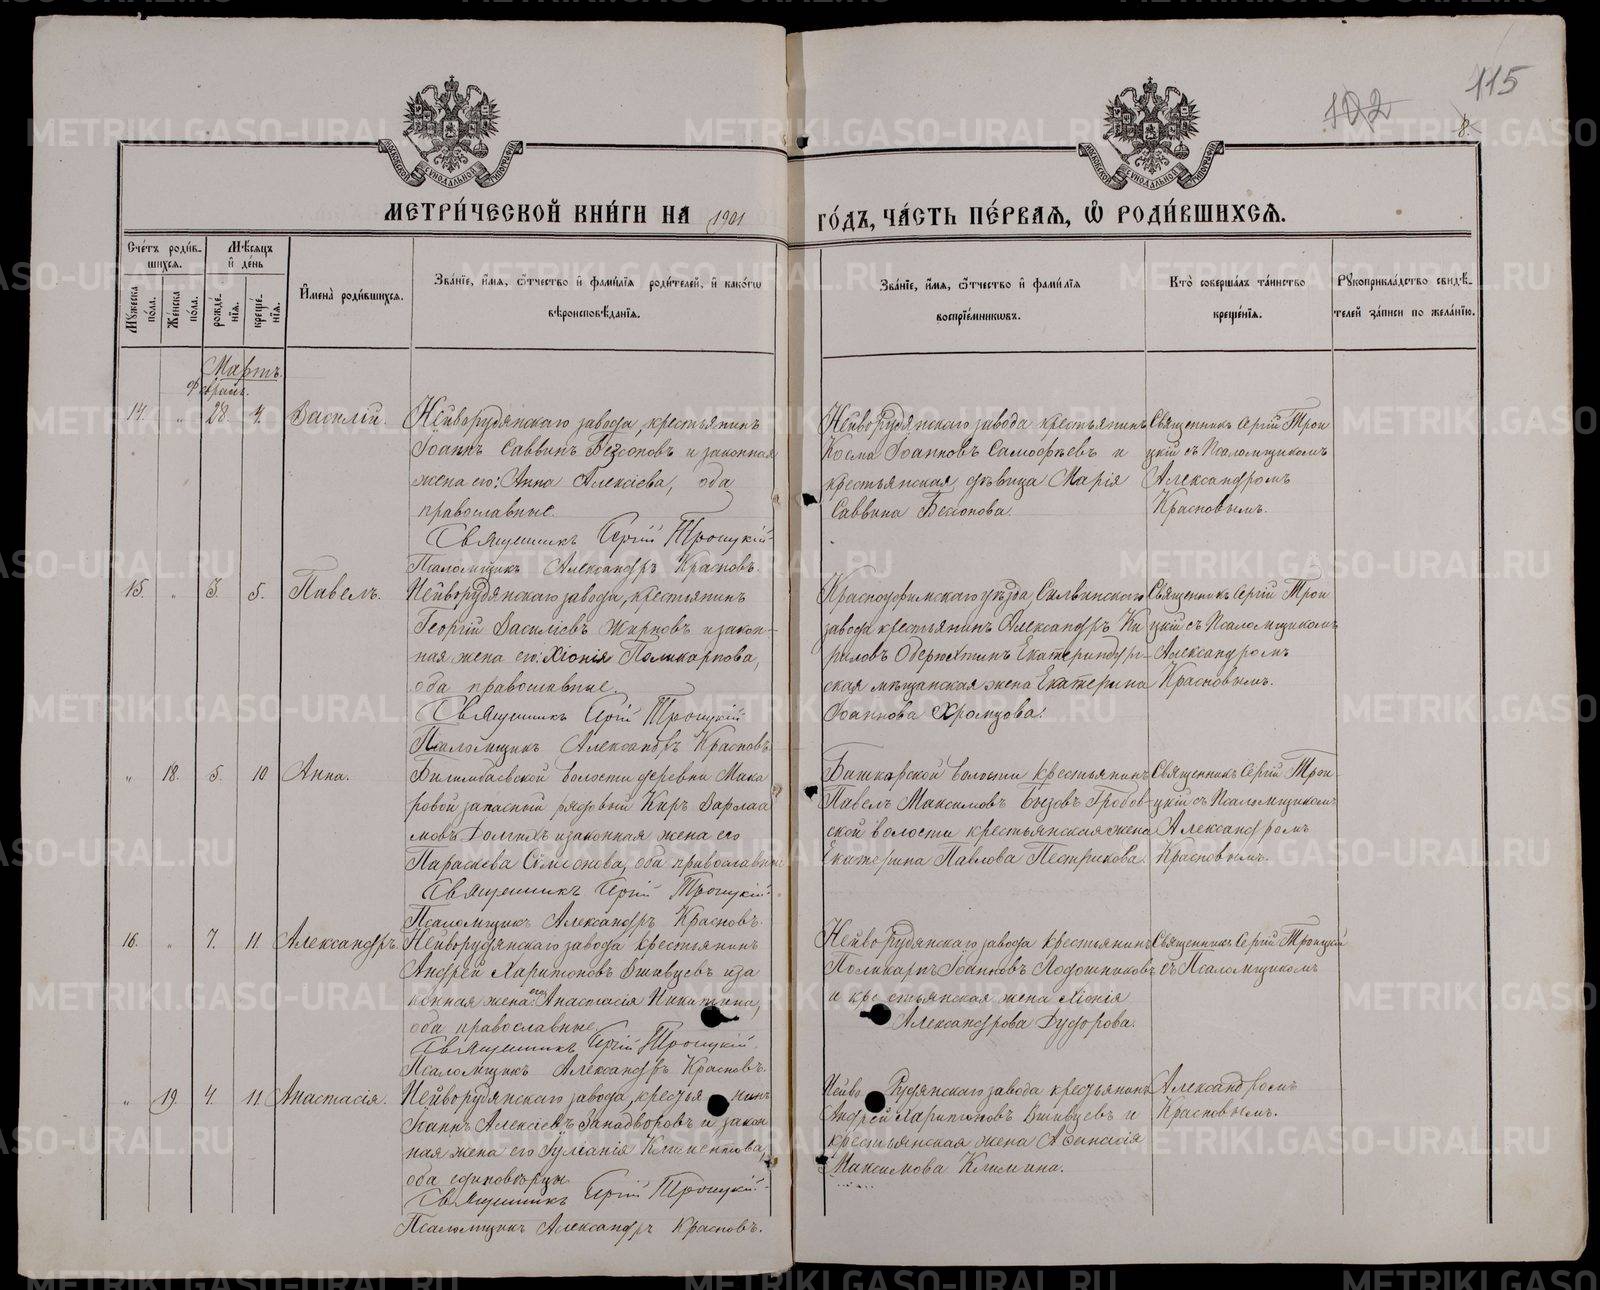 115
122
8.
МЕТРИ́ЧЕСКОЙ КНИ́ГИ НА 1901 ГО́ДЪ, ЧА́СТЬ ПЕ́РВАЯ, Ѽ РОДИ́ВШИХСЯ.
Сче́тъ роди́в-
шихся.
Мѣ́сяцъ
и҆ де́нь
Мꙋ́жеска
по́ла.
Же́нска
по́ла.
рожде́-
нїя.
креще́-
нїя.
И҆мена̀ роди́вшихся.
Зва́нїе, и҆́мя, ѻ҆́тчество и҆ фами́лїя роди́телей, и҆ како́гѡ
вѣроисповѣ́данїя.
Зва́нїе, и҆́мя, ѻ҆́тчество и҆ фами́лїя
воспрїе́мникѡвъ.
Кто̀ соверша́лъ та́инство
креще́нїя.
Рꙋкоприкла́дство свидѣ́-
телей за́писи по жела́нїю.
Мартъ.
Феврал.
14. " 28. 4. Василій.
Нейворудянскаго завода, крестьянинъ
Іоаннъ Саввинъ Безсоновъ и законная
жена его: Анна Алексіева, оба
православные.
Священникъ Сергій Троицкій
Псаломщикъ Александръ Красновъ.
Нейворудянскаго завода крестьянинъ
Косма Іоанновъ Самофѣевъ и
крестьянская дѣвица Марія
Саввина Безсонова.
Священникъ Сергій Трои
цкій съ Псаломщикомъ
Александромъ
Красновымъ.
15. " 3. 5. Павелъ.
Нейворудянскаго завода, крестьянинъ
Георгій Василіевъ Жирновъ и закон-
ная жена его: Хіонія Поликарпова,
оба православные.
Священникъ Сергій Троицкій
Псаломщикъ Александръ Красновъ
Красноуфимскаго уѣзда, Сылвинскаго
завода крестьянинъ Александръ Ки
риловъ Оберюхтинъ Екатеринбург-
ская мѣщанская жена Екатерина
Іоаннова Хромцова.
Священникъ Сергій Трои
цкій съ Псаломщикомъ
Александромъ
Красновымъ.
" 18. 5. 10 Анна.
Билимбаевской волости деревни Мака
ровой запасный рядовый Киръ Варлаа
мовъ Долгихъ и законная жена его
Параскева Сімеонова, оба православные
Священникъ Сергій Троицкій
Псаломщикъ Александръ Красновъ.
Башкарской волости крестьянинъ
Павелъ Максимовъ Бызовъ Гробов-
ской волости крестьянская жена
Екатерина Павлова Пестрикова.
Священникъ Сергій Трои-
цкій съ Псаломщикомъ
Александромъ
Красновымъ.
16. " 7. 11. Александръ.
Нейворудянскаго завода крестьянинъ
Андрей Харитоновъ Вшивцевъ и за
конная жена его Анастасія Никитина,
оба православные
Священникъ Сергій Троицкій.
Псаломщикъ Александръ Красновъ.
Нейворудянскаго завода крестьянинъ
Поликарпъ Іоанновъ Лодошниковъ
и крестьянская жена Хіонія
Александрова Дудорова.
Священникъ Сергій Троицкій
съ Псаломщикомъ
" 19. 4. 11. Анастасія.
Нейворудянскаго завода, крестьянинъ
Іоаннъ Алексіевъ Западворовъ и закон
ная жена его Іуліанія Климентова,
оба единовѣрцы
Священникъ Сергій Троицкій.
Псаломщикъ Александръ Красновъ.
Нейво Рудянскаго завода крестьянинъ
Андрей Харитоновъ Вшивцевъ и
крестьянская жена Афанасія
Максимова Климина.
Александромъ
Красновымъ.
METRIKI.GASO-URAL.RU